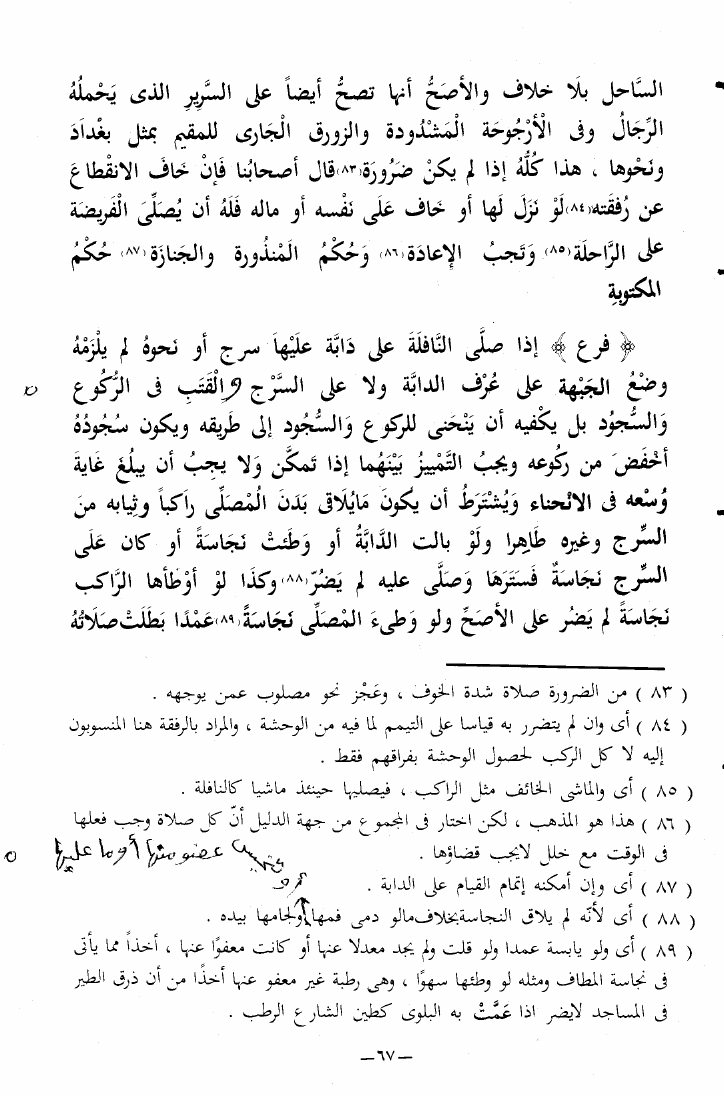 السَّاحل بلَا خلاف والأصَحُّ أنها تصحُّ أيضاً على السَّرير الذى يَحْملُهُ
الرِّجَالُ وفى الْأرْجُوحَة الْمَشْدُودة والزورق الْجَارى للمقيم بمثل بغْدادَ
ونَحْوها ، هذا كُلُّهُ إذا لم يكنْ ضَرُورَة(٨٣)قال أصحابُنا فَإنْ خَافَ الانْقطاعَ
عن رُفقَته(٨٤)لَوْ نَزَلَ لَها أو خاف عَلَى نَفْسه أو ماله فَلَهُ أن يُصَلِّىَ الْفَريضَة
على الرَّاحلَة(٨٥) وَتَجبُ الإعادَة(٨٦) وَحُكْمُ الَمنْذُورة والجَنازَة(٨٧) حُكْمُ
المكتوبةِ
﴿ فرع ﴾ إذا صلَّى النَّافلَةَ على دَابَّة علَيْهاَ سرج أو نَحوهُ لم يلْزَمْهُ
وضْعُ الجَبْهة على عُرْف الدابَّة ولا على السَّرْج والْقَتَبِ فى الرُّكُوع
وَالسُّجوُد بل يكْفيه أن يَنْحَنى للركوع وَالسُّجود إلى طَريقه ويكون سُجُودُهُ
أخْفَضَ من ركُوعه ويجبُ التَّمْييزُ بَيْنَهُما إذا تَمكَّن وَلا يجبُ أن يبلُغَ غايةَ
وُسْعه فى الانْحناء وَيُشْتَرطُ أن يكونَ مَايُلَاقى بَدَن الْمُصلِّى راكباً وثِيابه منَ
السِّرج وغيره طَاهِرا ولَوْ بالت الدابَّةُ أو وَطئتْ نَجَاسةً أو كان عَلَى
السِّرج نَجَاسَةٌ فَسَتَرَهَا وَصَلَّى عليه لم يَضُرّ(٨٨)وكَذَا لوْ أوْطأها الرَّاكب
نَجَاسَةً لم يَضُر على الأصَحِّ ولو وَطىءَ المْصَلِّى نَجَاسَةً(٨٩)عَمْدًا بَطَلَتْ صلَاتُهُ
( ٨٣ ) من الضرورة صلاة شدة الخوف ، وعَجْز نحو مصلوب عمن يوجهه .
( ٨٤ ) أى وان لم يتضرر به قياسا على التيمم لما فيه من الوحشة ، والمراد بالرفقة هنا المنسوبون
إليه لا كل الركب لحصول الوحشة بفراقهم فقط .
( ٨٥ ) أى والماشى الخائف مثل الراكب ، فيصليها حينئذ ماشيا كالنافلة .
( ٨٦ ) هذا هو المذهب ، لكن اختار فى المجموع من جهة الدليل أنّ كل صلاة وجب فعلها
فى الوقت مع خلل لايجب قضاؤها .
عضو منها أو ما عليها
( ٨٧ ) أى وإن أمكنه إتمام القيام على الدابة .
( ٨٨ ) أى لأنّه لم يلاق النجاسة بخلاف مالو دمى فمها ولجامها بيده .
( ٨٩ ) أى ولو يابسة عمدا ولو قلت ولم يجد معدلا عنها أو كانت معفوًا عنها ، أخذاً مما يأتى
فى نجاسة المطاف ومثله لو وطئها سهوًا ، وهى رطبة غير معفو عنها أخذًا من أن ذرق الطير
فى المساجد لايضر اذا عَمَّتْ به البلوى كطين الشارع الرطب .
—٦٧—